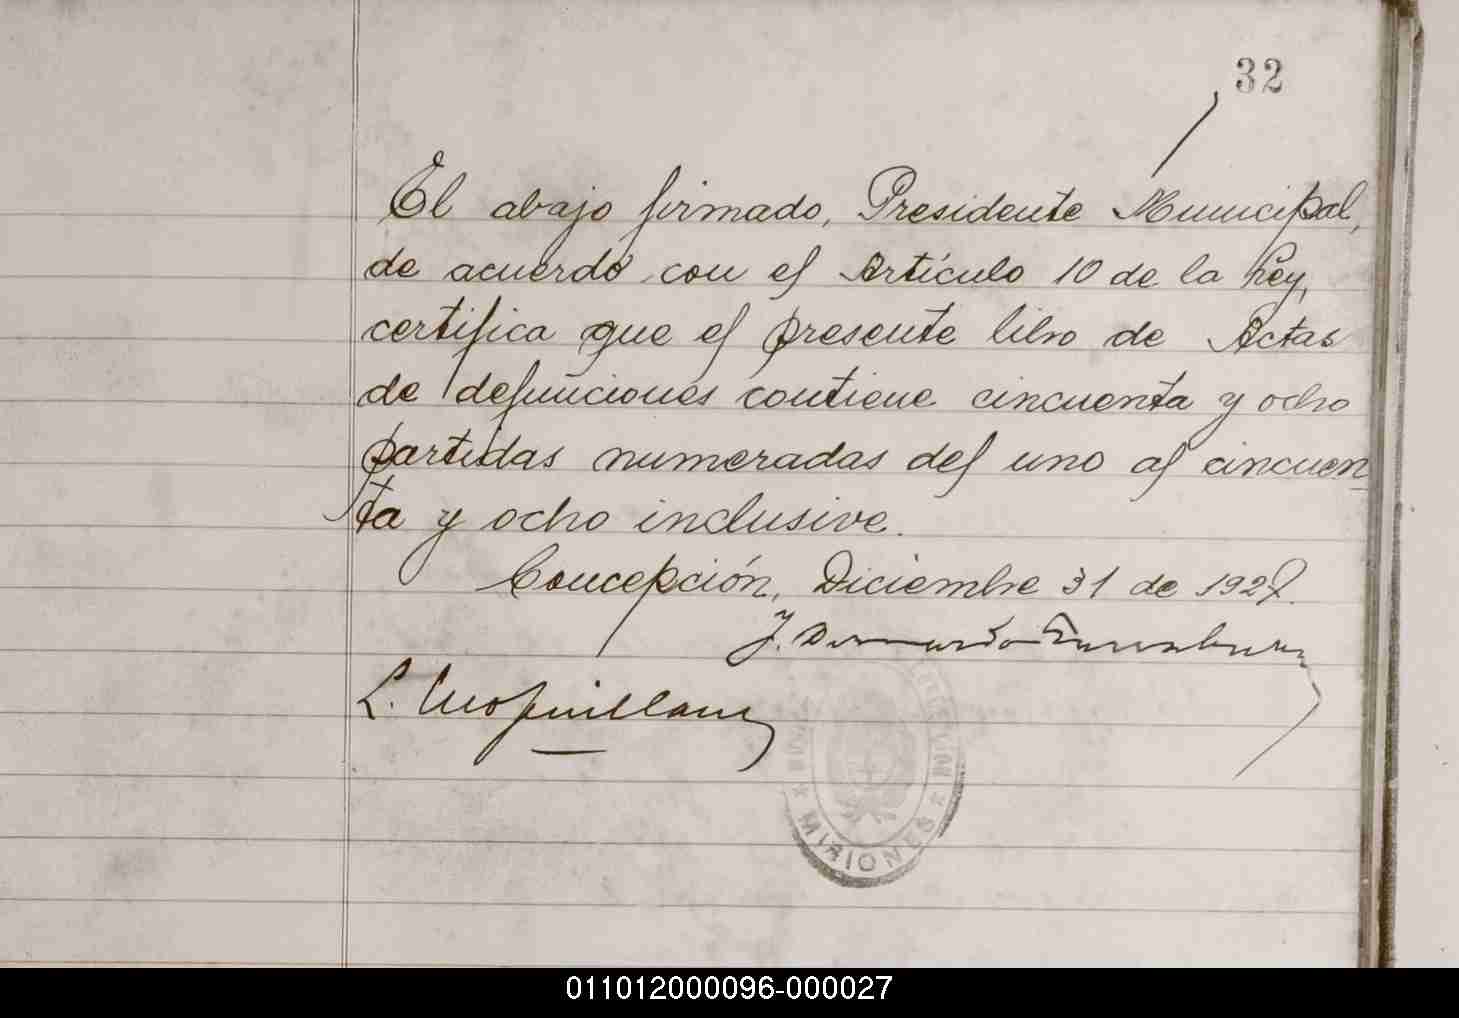 32
El abajo firmado, Presidente Municipal,
de acuerdo con el Artículo 10 de la Ley,
certifica que el presente libro de Actas
de defunciones contiene cincuenta y ocho
partidas numeradas del uno al cincuen
ta y ocho inclusive.
Concepción, Diciembre 31 de 1927.
J. Bernardo
L.
MISIONES
011012000096-000027